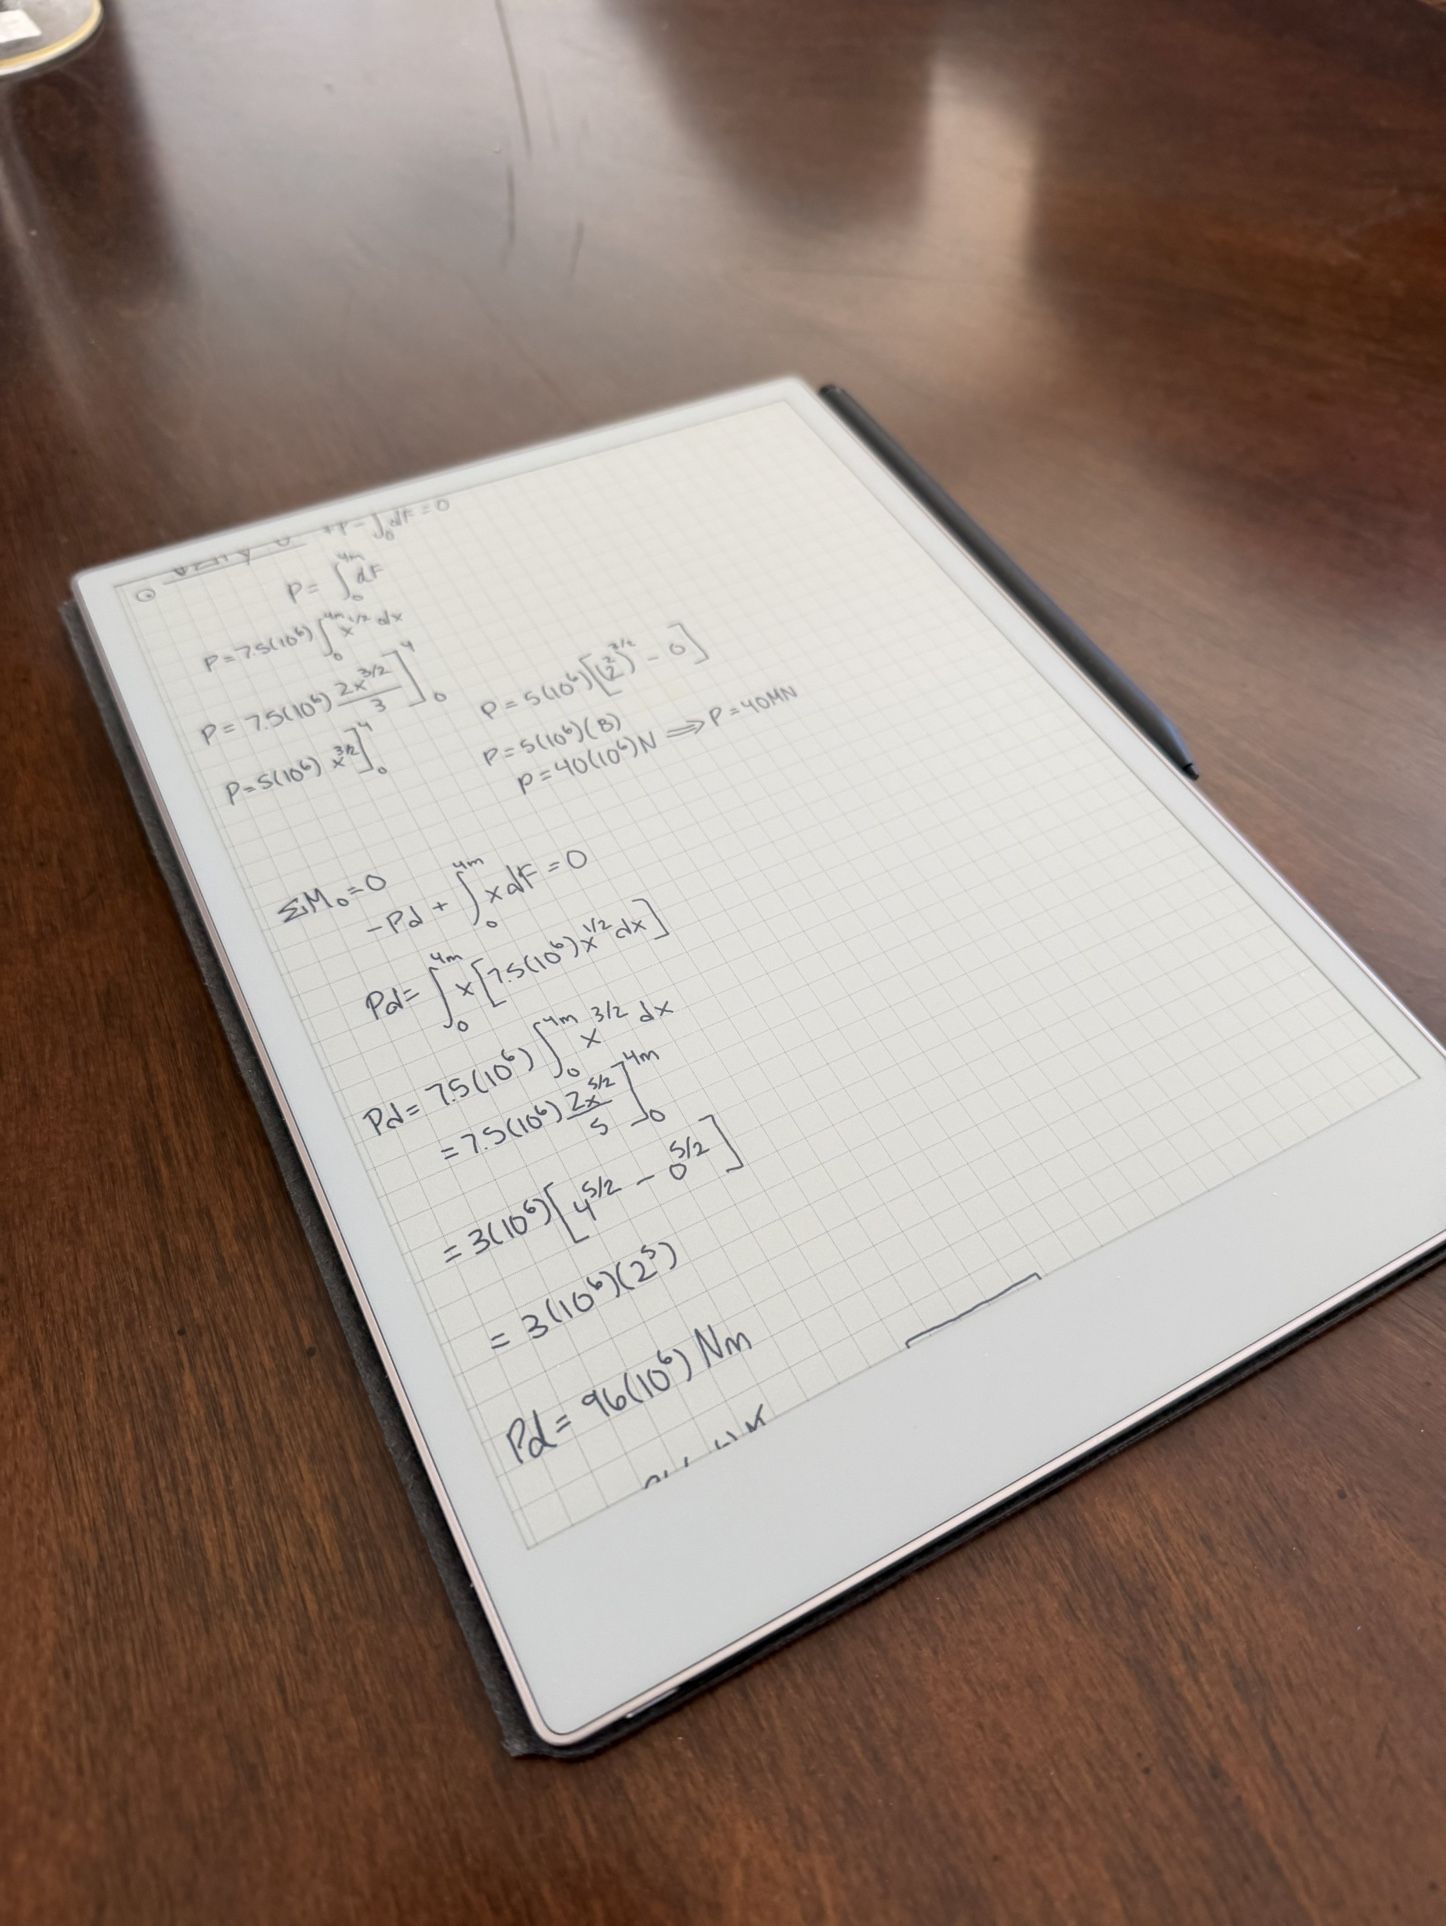 +P-∫₀ dF=0
P= ∫₀^4m dF
P=7.5(10⁶) ∫₀^4m x^1/2 dx
P= 7.5(10⁶) 2x^3/2 / 3 ]₀^4
P=5(10⁶) x^3/2 ]₀^4
P=5(10⁶)[(2²)^3/2 - 0]
P=5(10⁶)(8)
P=40(10⁶)N ⟹ P=40MN
ΣM₀=0
-Pd + ∫₀^4m x dF=0
Pd= ∫₀^4m x[7.5(10⁶)x^1/2 dx]
Pd= 7.5(10⁶) ∫₀^4m x^3/2 dx
=7.5(10⁶) 2x^5/2 / 5 ]₀^4m
=3(10⁶)[4^5/2 - 0^5/2]
= 3(10⁶)(2⁵)
Pd= 96(10⁶) Nm